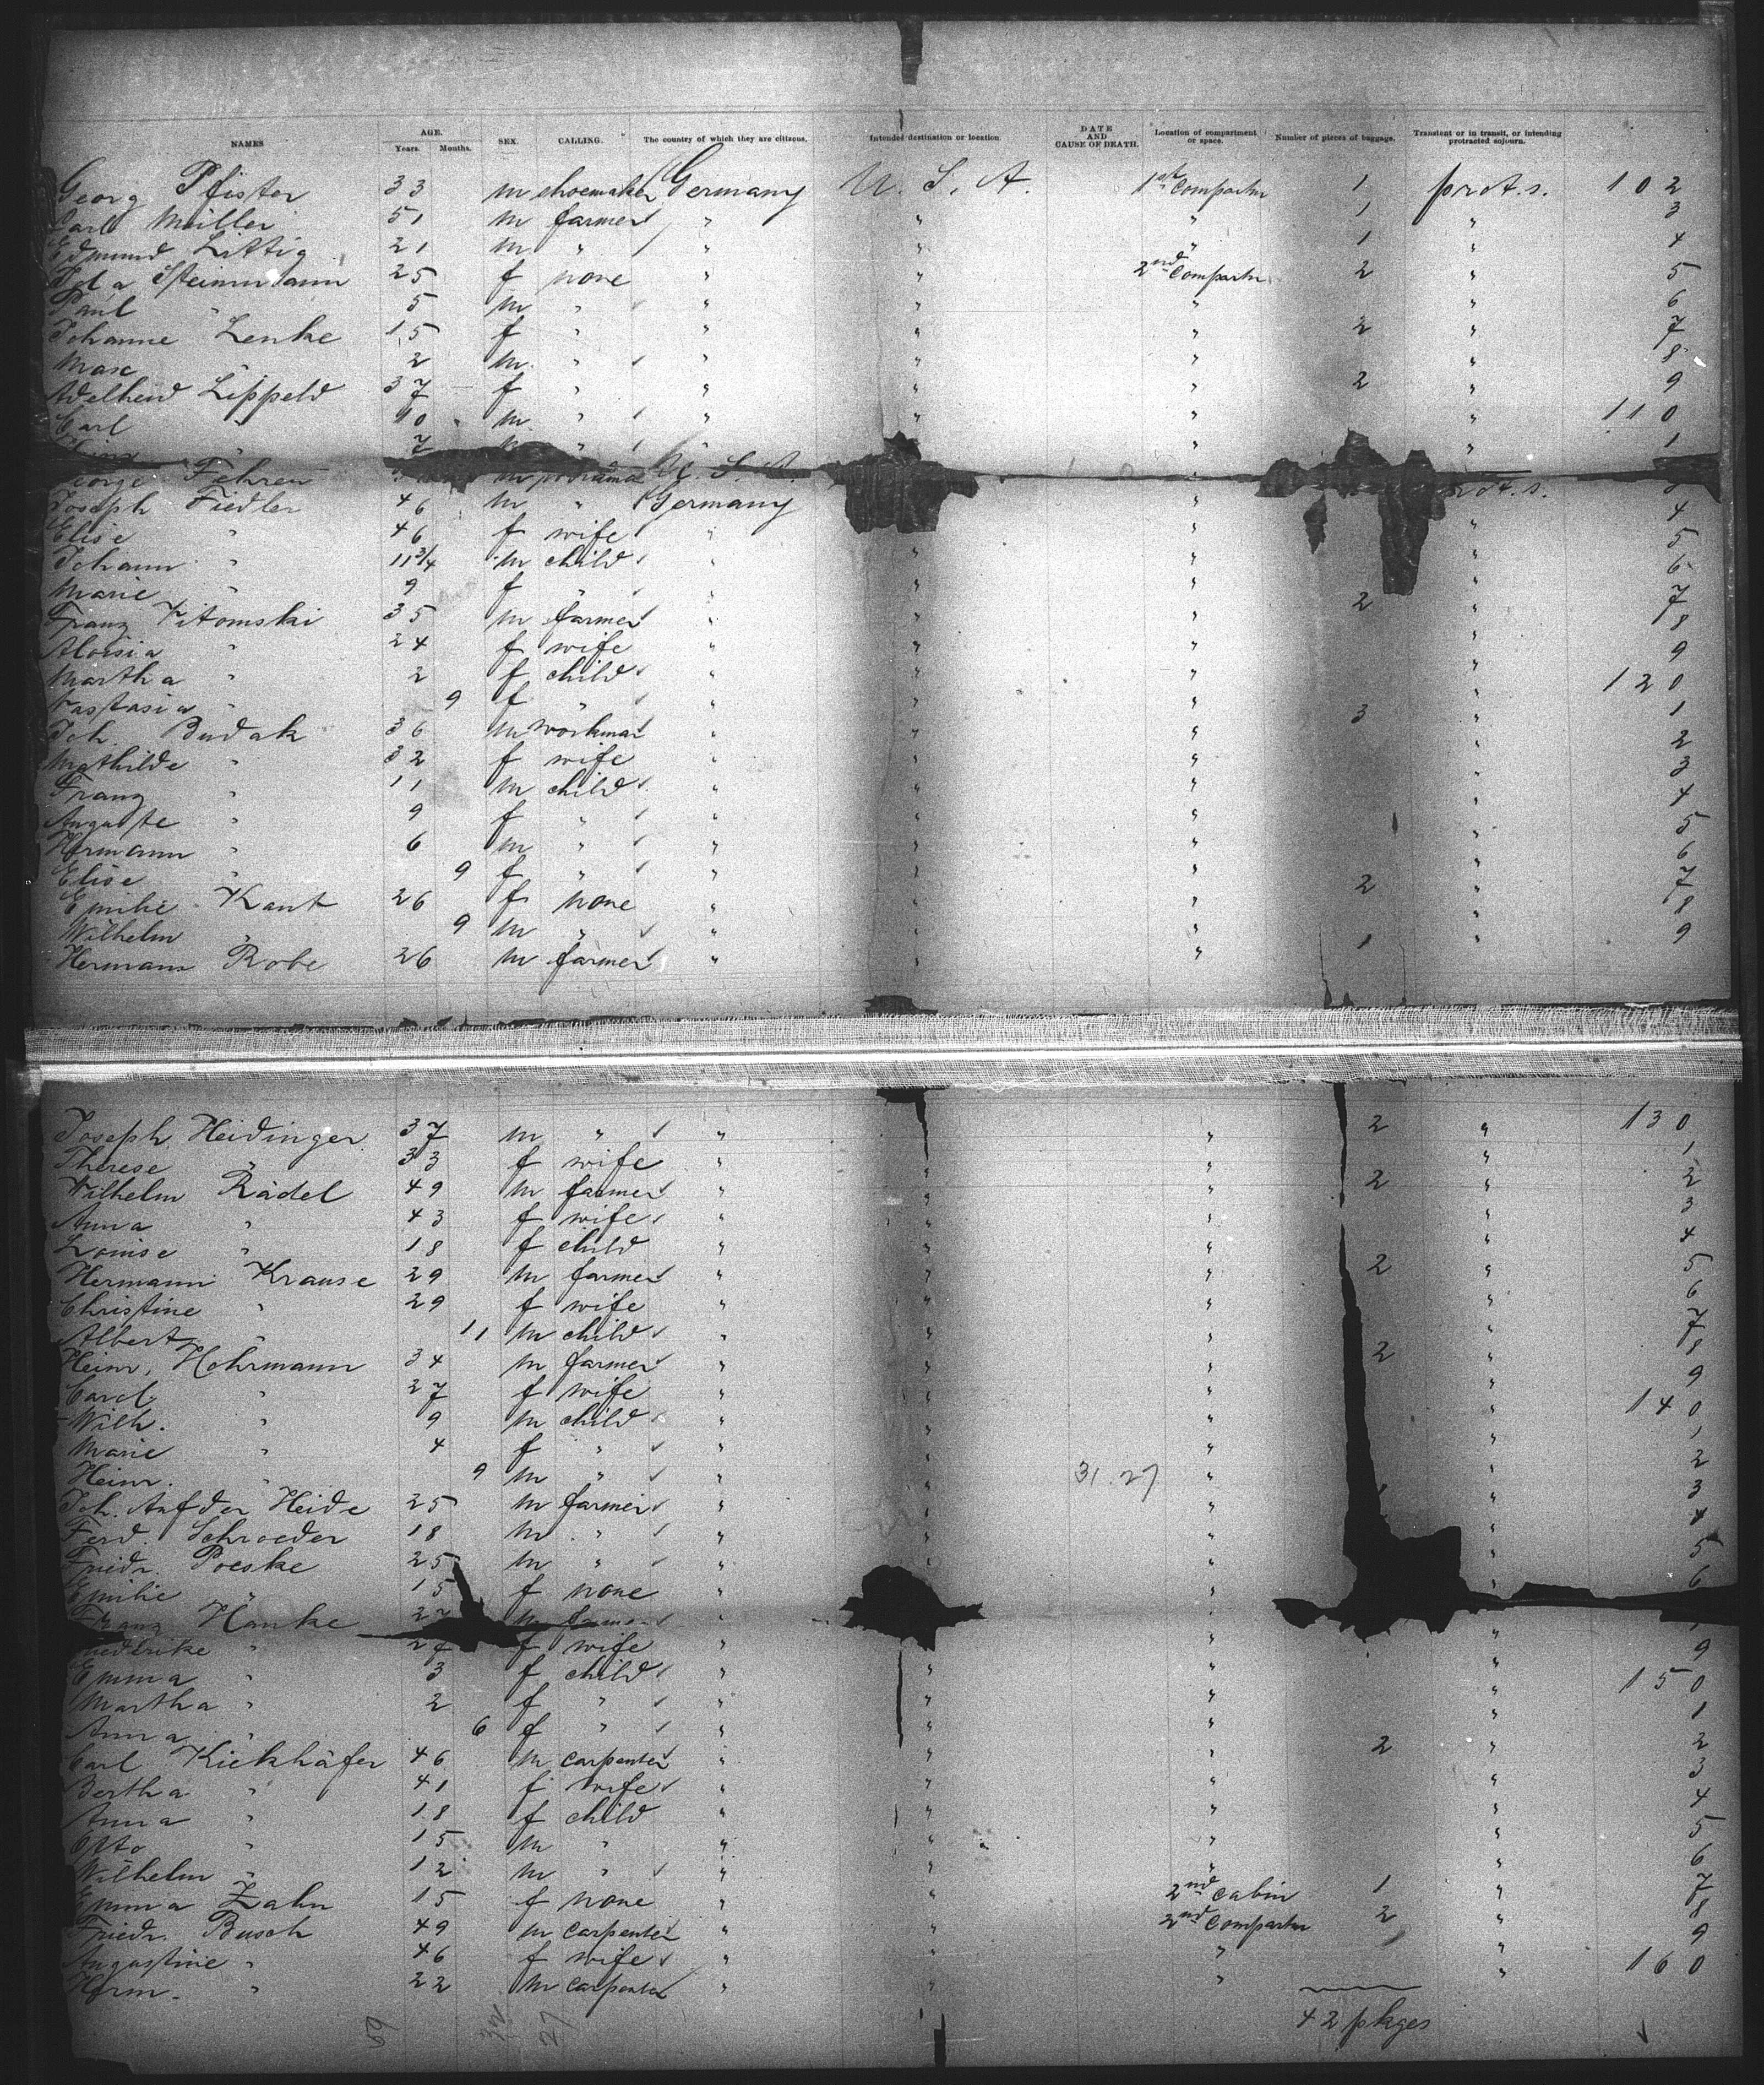 NAMES AGE. Years. Months. SEX. CALLING. The country of which they are citizens. Intended destination or location. DATE AND CAUSE OF DEATH. Location of compartment or space. Number of pieces of baggage. Transient or in transit, or intending protracted sojourn.
Georg Pfister 33 m shoemaker Germany U. S. A. 1st Compartm 1 prot. s. 102
Carl Müller 51 m farmer " " " 1 " 3
Edmund Littig 21 m " " " " 1 " 4
Ida Steinmann 25 f none " " 2nd Compartm 2 " 5
Paul " 5 m " " " " " 6
Johanne Lenke 15 f " " " 2 " 7
Max " 2 m " " " " " 8
Adelheid Lippeld 37 f " " " " 2 " 9
Carl 10 m " " " " " 110
" 7 " " " 1
George Fehren m U. S. A. "
Joseph Fiedler 46 m " Germany " prot. s.
Elise " 46 f wife " " " 4
Johann " 11 3/4 m child " " " " 5
Marie " 9 f " " " " " 6
Franz Vitomski 35 m farmer " " " 2 " 7
Aloisia " 24 f wife " " " " 8
Martha " 2 f child " " " " 9
" 9 f " " " " " 120
Joh. Budak 36 m workman " " " 3 " 1
Mathilde " 32 f wife " " " " 2
Franz " 11 m child " " " " 3
Auguste " 9 f " " " " " 4
Hermann " 6 m " " " " " 5
Elise " 9 f " " " " " 6
Emilie Kant 26 f none " " " 2 " 7
Wilhelm " 9 m " " " " " 8
Hermann Robe 26 m farmer " " " 1 " 9
Joseph Heidinger 37 m " " " 2 " 130
Therese " 33 f wife " " " " 1
Wilhelm Rädel 49 m farmer " " " 2 " 2
Anna " 43 f wife " " " " 3
Louise " 18 f child " " " " 4
Hermann Krause 29 m farmer " " " 2 " 5
Christine " 29 f wife " " " " 6
Albert " 11 m child " " " " 7
Heinr. Hohrmann 34 m farmer " " " 2 " 8
Carol. " 27 f wife " " " " 9
Wilh. " 9 m child " " " " 140
Marie " 4 f " " " " " 1
Heinr. " 9 m " " " 31.27 " " 2
Joh. Aufder Heide 25 m farmer " " " " 3
Ferd. Schroeder 18 m " " " " " 4
Friedr. Poeske 25 m " " " " " 5
Emilie " 15 f none " " " 6
Franz Hanke 27 m farmer " "
Friederike " 27 f wife " " " 9
Emma " 3 f child " " " " 150
Martha " 2 f " " " " " 1
Anna " 6 f " " " " 2
Carl Kiekhäfer 46 m carpenter " " 2 " 3
Bertha " 41 f wife " " " " 4
Anna " 18 f child " " " " 5
Otto " 15 m " " " " " 6
Wilhelm " 12 m " " " " 7
Emma Zahn 15 f none " " 2nd cabin 1 " 8
Friedr. Busch 49 m carpenter " " 2nd Compartm 2 " 9
Augustine " 46 f wife " " " " 160
Herm. " 22 m carpenter " " " "
59 32 27 42 pkges